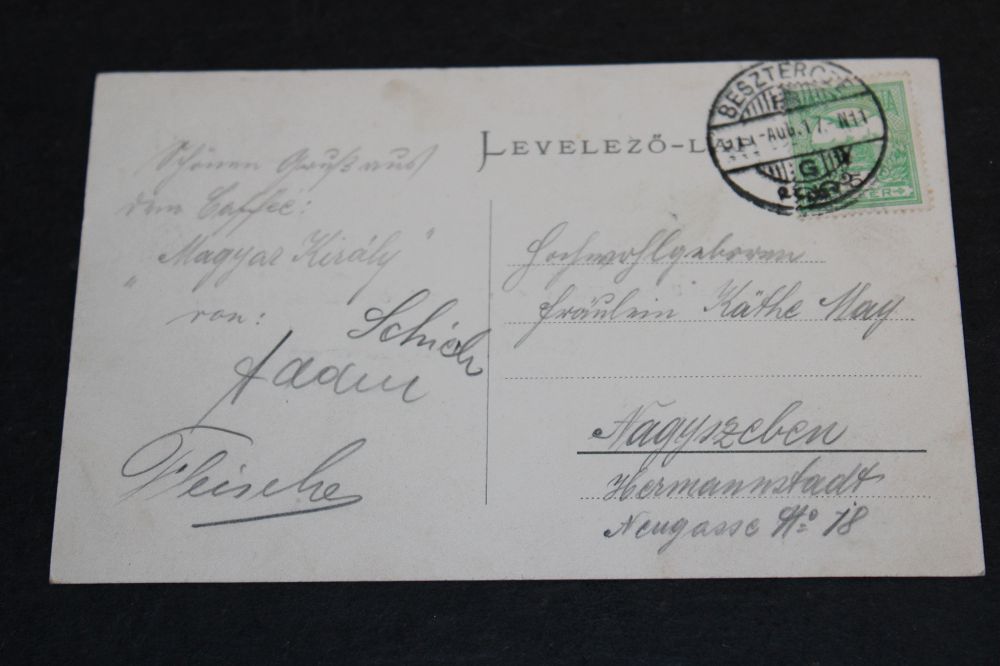 LEVELEZŐ-L
BESZTERCZE
911-AUG.17. N11
G
Schönen Gruß aus
dem Caffée:
"Magyar Király"
von:
Schich
Adam
Fleischer
Hochwohlgeboren
Fräulein Käthe May
Nagyszeben
Hermannstadt
Neugasse No 18